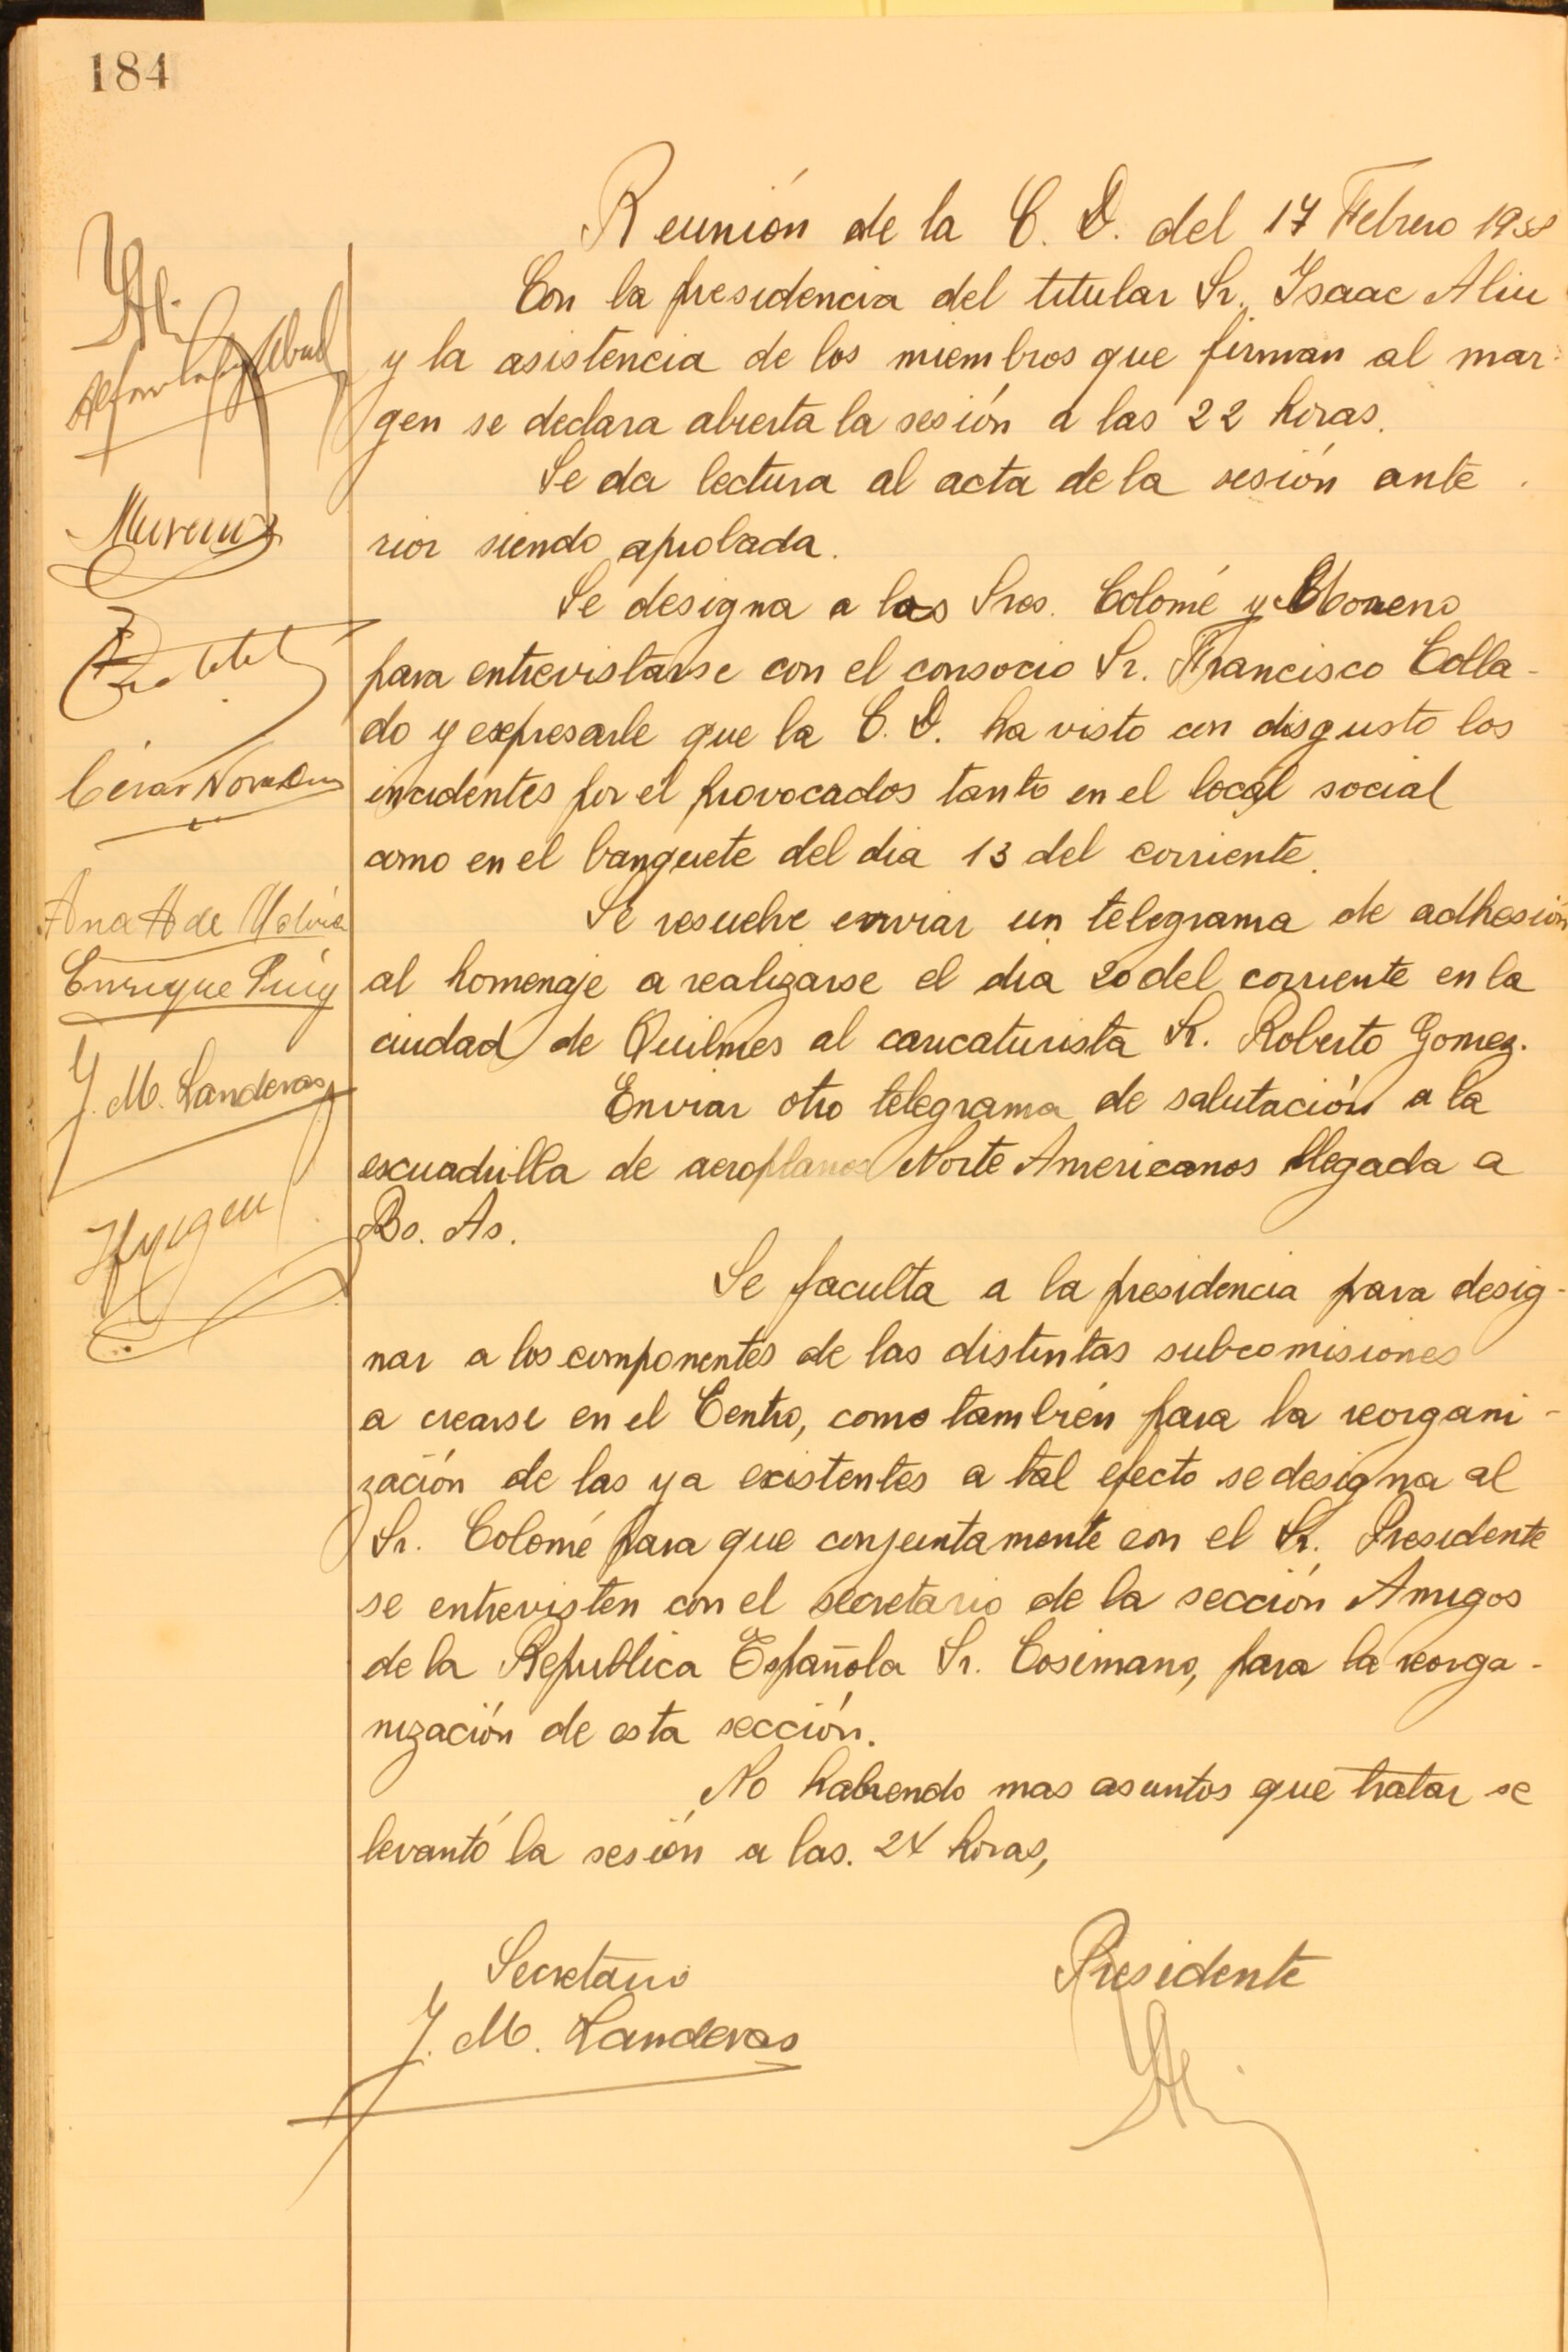 184
Reunión de la C. D. del 17 Febrero 1938
Con la presidencia del titular Sr. Isaac Aliu
y la asistencia de los miembros que firman al mar-
gen se declara abierta la sesión a las 22 horas.
Se da lectura al acta de la sesión ante
rior siendo aprobada.
Se designa a los Sres. Colomé y Moreno
para entrevistarse con el consocio Sr. Francisco Colla-
do y expresarle que la C. D. ha visto con disgusto los
incidentes por el provocados tanto en el local social
como en el banquete del dia 13 del corriente.
Se resuelve enviar un telegrama de adhesión
al homenaje a realizarse el dia 20 del corriente en la
ciudad de Quilmes al caricaturista Sr. Roberto Gomez.
Enviar otro telegrama de salutación a la
escuadrilla de aeroplanos Norte Americanos llegada a
Bs. As.
Se faculta a la presidencia para desig-
nar a los componentes de las distintas subcomisiones
a crearse en el Centro, como también para la reorgani-
zación de las ya existentes a tal efecto se designa al
Sr. Colomé para que conjuntamente con el Sr. Presidente
se entrevisten con el secretario de la sección Amigos
de la Republica Española Sr. Cosimano, para la reorga-
nización de esta sección.
No habiendo mas asuntos que tratar se
levantó la sesión a las. 24 horas,
Moreno
César
Ana A de
Enrique Puig
J. M. Landeras
Secretario
J. M. Landeras
Presidente